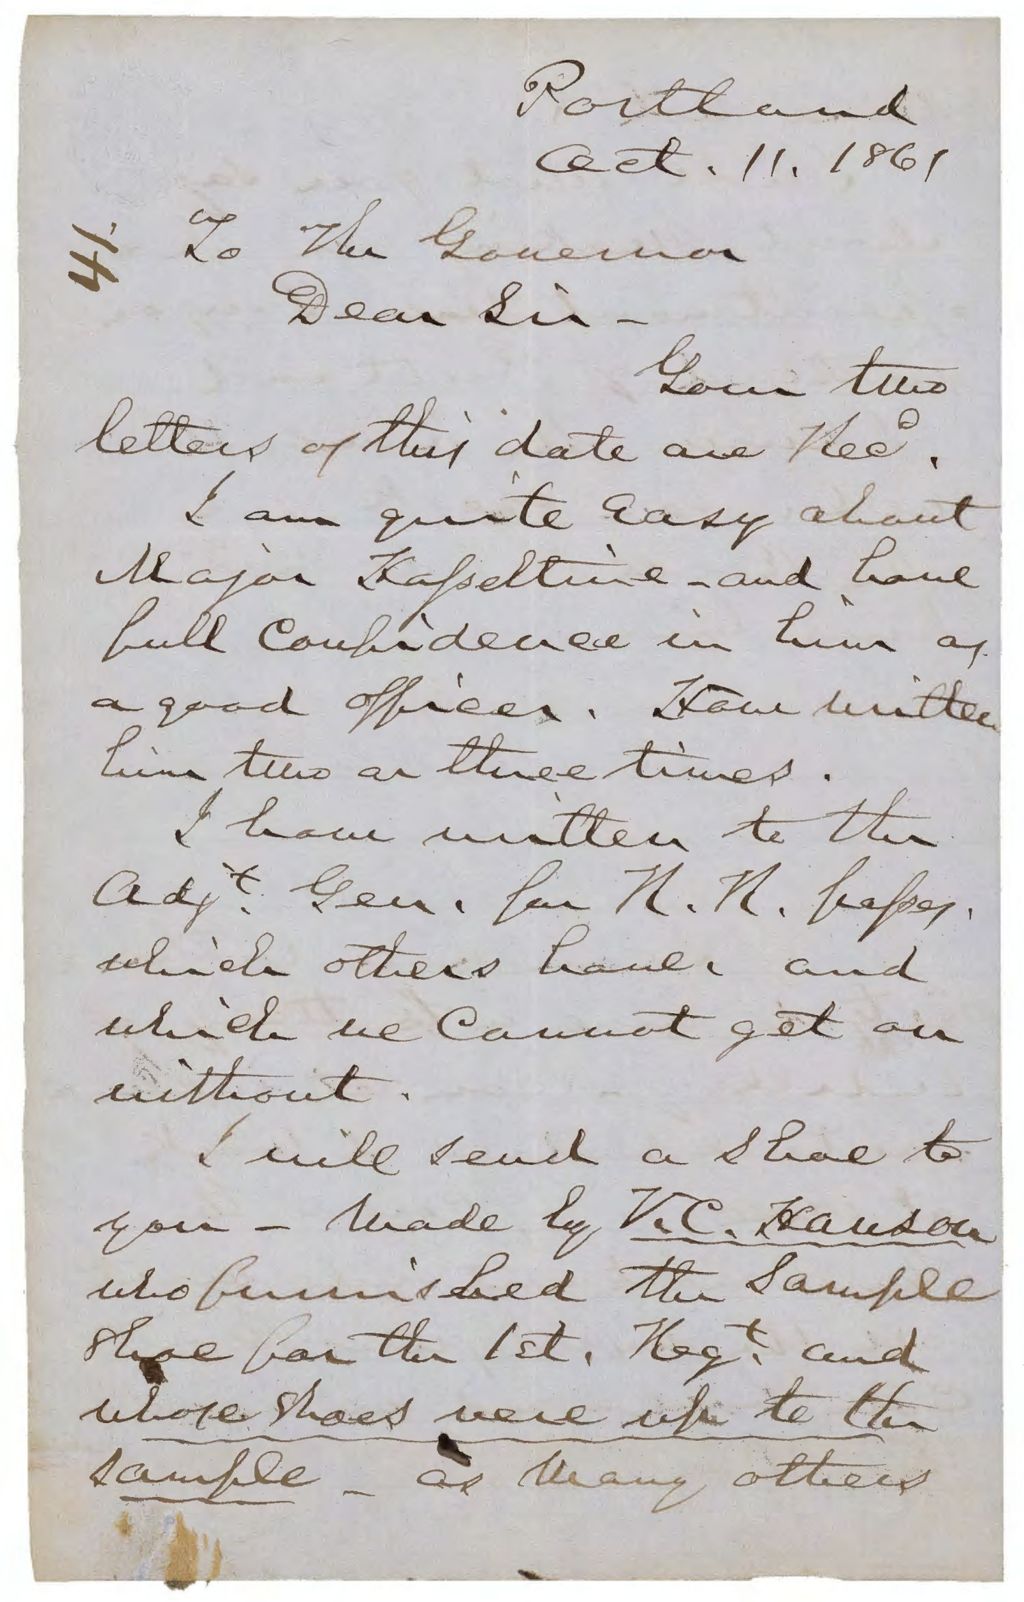 Portland
Oct. 11. 1861
14.
To The Governor
Dear Sir -
Your two
letters of this date are Recd.
I am quite easy about
Major Hasseltine - and have
full confidence in him as
a good officer. Have written
him two or three times.
I have written to the
Adjt. Gen. for R. R. passes.
which others have. and
which we cannot get on
without.
I will send a Shoe to
you - made by V. C. Hanson
who furnished the Sample
Shoe for the 1st. Regt. and
whose Shoes were up to the
sample - as many others